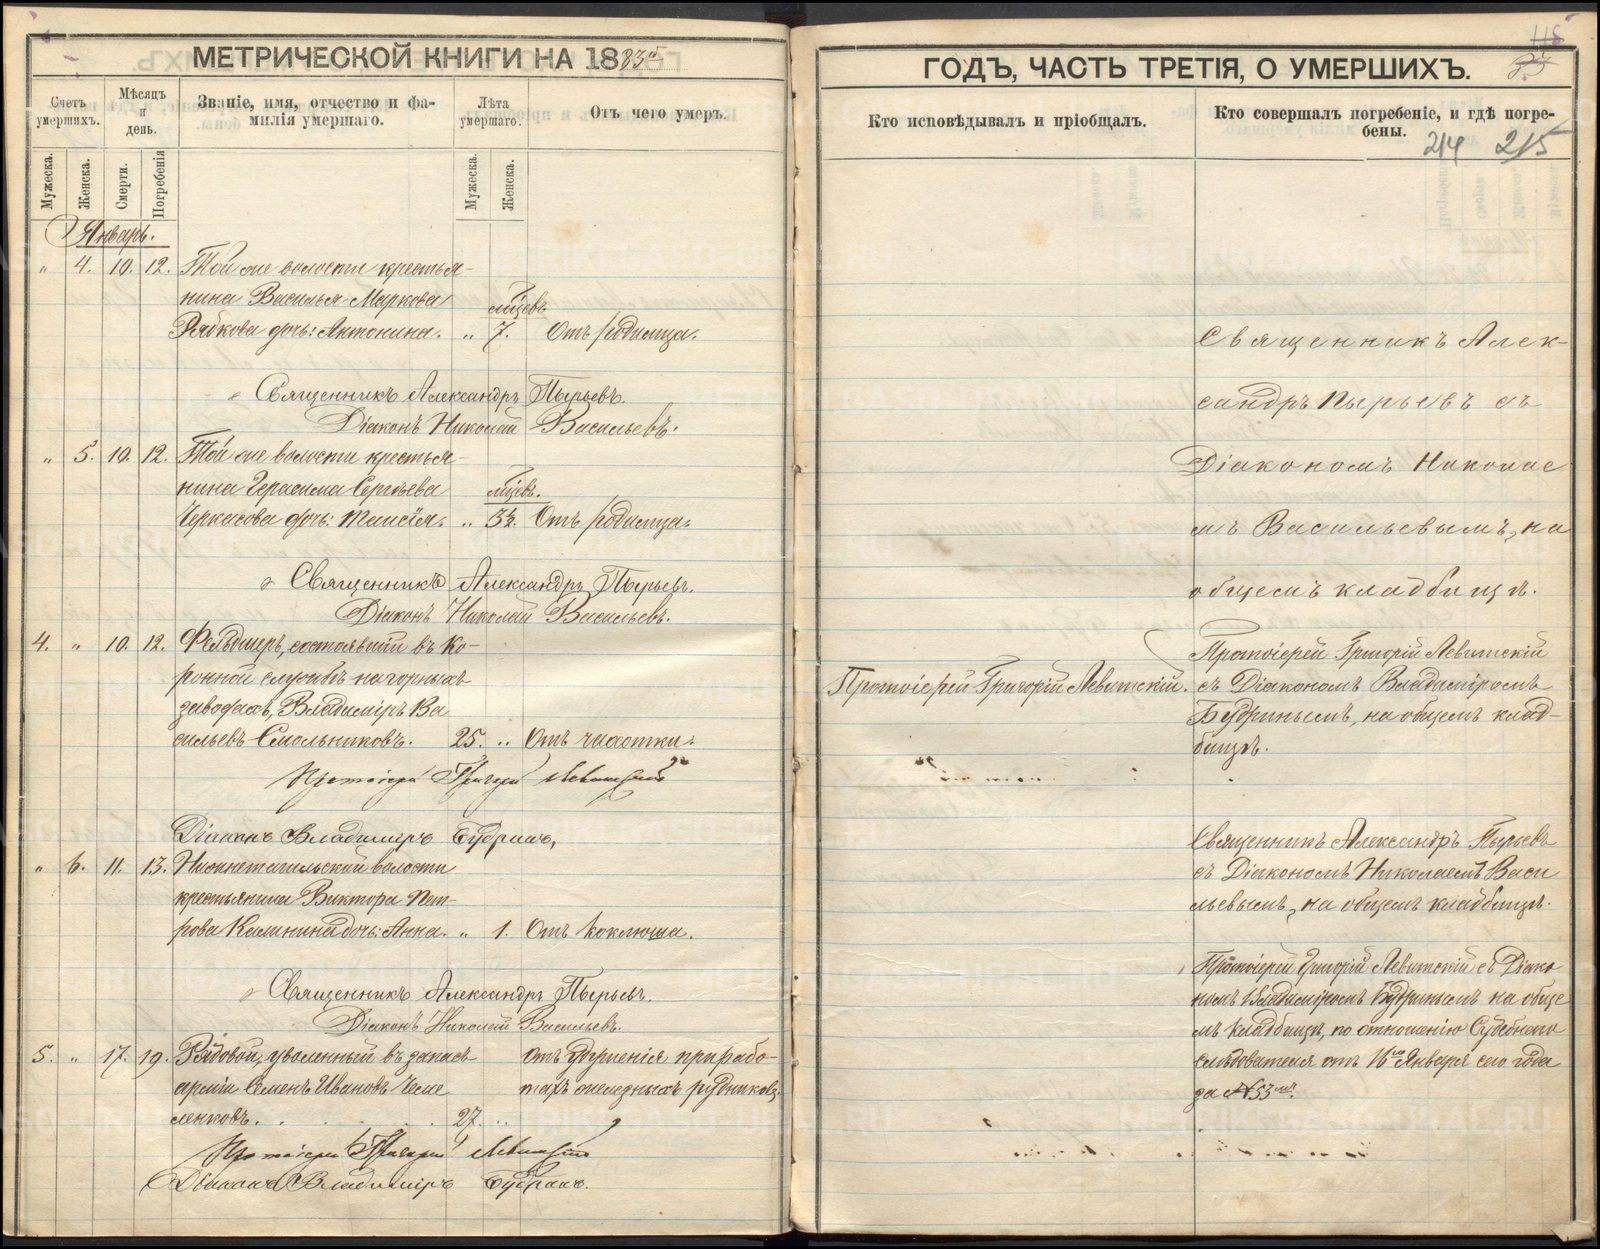 МЕТРИЧЕСКОЙ КНИГИ НА 1883й
Счетъ умершихъ.
Мѣсяцъ и день.
Званіе, имя, отчество и фа-
милія умершаго.
Лѣта умершаго.
Отъ чего умеръ.
Мужеска.
Женска.
Смерти.
Погребенія
Мужеска.
Женска.
Январь.
" 4. 10. 12. Той же волости крестья-
нина Василья Маркова мѣсяцъ
Рябкова дочь: Антонина. " 7. Отъ родимца.
Священникъ Александръ Пырьевъ.
Діаконъ Николай Васильевъ.
" 5. 10. 12. Той же волости крестья-
нина Герасима Сергѣева мѣсяцъ.
Черкасова дочь: Таисія. " 3½. Отъ родимца.
Священникъ Александръ Пырьевъ.
Діаконъ Николай Васильевъ.
4. " 10. 12. Фельдшеръ, состоявшій въ ко-
ронной службѣ на горныхъ
заводахъ, Владиміръ Ва
сильевъ Смольниковъ. 25. " Отъ чахотки.
Протоіерей Григорій Левитскій
Діаконъ Владиміръ Будринъ,
" 6. 11. 13. Нижнетагильской волости
крестьянина Виктора Пет-
рова Калинина дочь: Анна. " 1. Отъ коклюша.
Священникъ Александръ Пырьевъ.
Діаконъ Николай Васильевъ.
5. " 17. 19. Рядовой, уволенный въ запасъ Отъ удушенія при рабо-
арміи Семенъ Ивановъ тахъ желѣзныхъ рудниковъ.
27. "
Протоіерей Григорій Левитскій
Діаконъ Владиміръ Будринъ.
ГОДЪ, ЧАСТЬ ТРЕТІЯ, О УМЕРШИХЪ.
Кто исповѣдывалъ и пріобщалъ.
Кто совершалъ погребеніе, и гдѣ погре-
бены.
214 215
Священникъ Алек-
сандръ Пырьевъ съ
Діакономъ Николае
мъ Васильевымъ, на
общемъ кладбищѣ.
Протоіерей Григорій Левитскій.
Протоіерей Григорій Левитскій
съ Діакономъ Владиміромъ
Будринымъ, на общемъ клад-
бищѣ.
Священникъ Александръ Пырьевъ
съ Діакономъ Николаемъ Васи
льевымъ, на общемъ кладбищѣ.
Протоіерей Григорій Левитскій съ Діако
номъ Владиміромъ Будринымъ на обще
мъ кладбищѣ, по отношенію Судебнаго
слѣдователя отъ 16го Января сего года
за №53мъ.